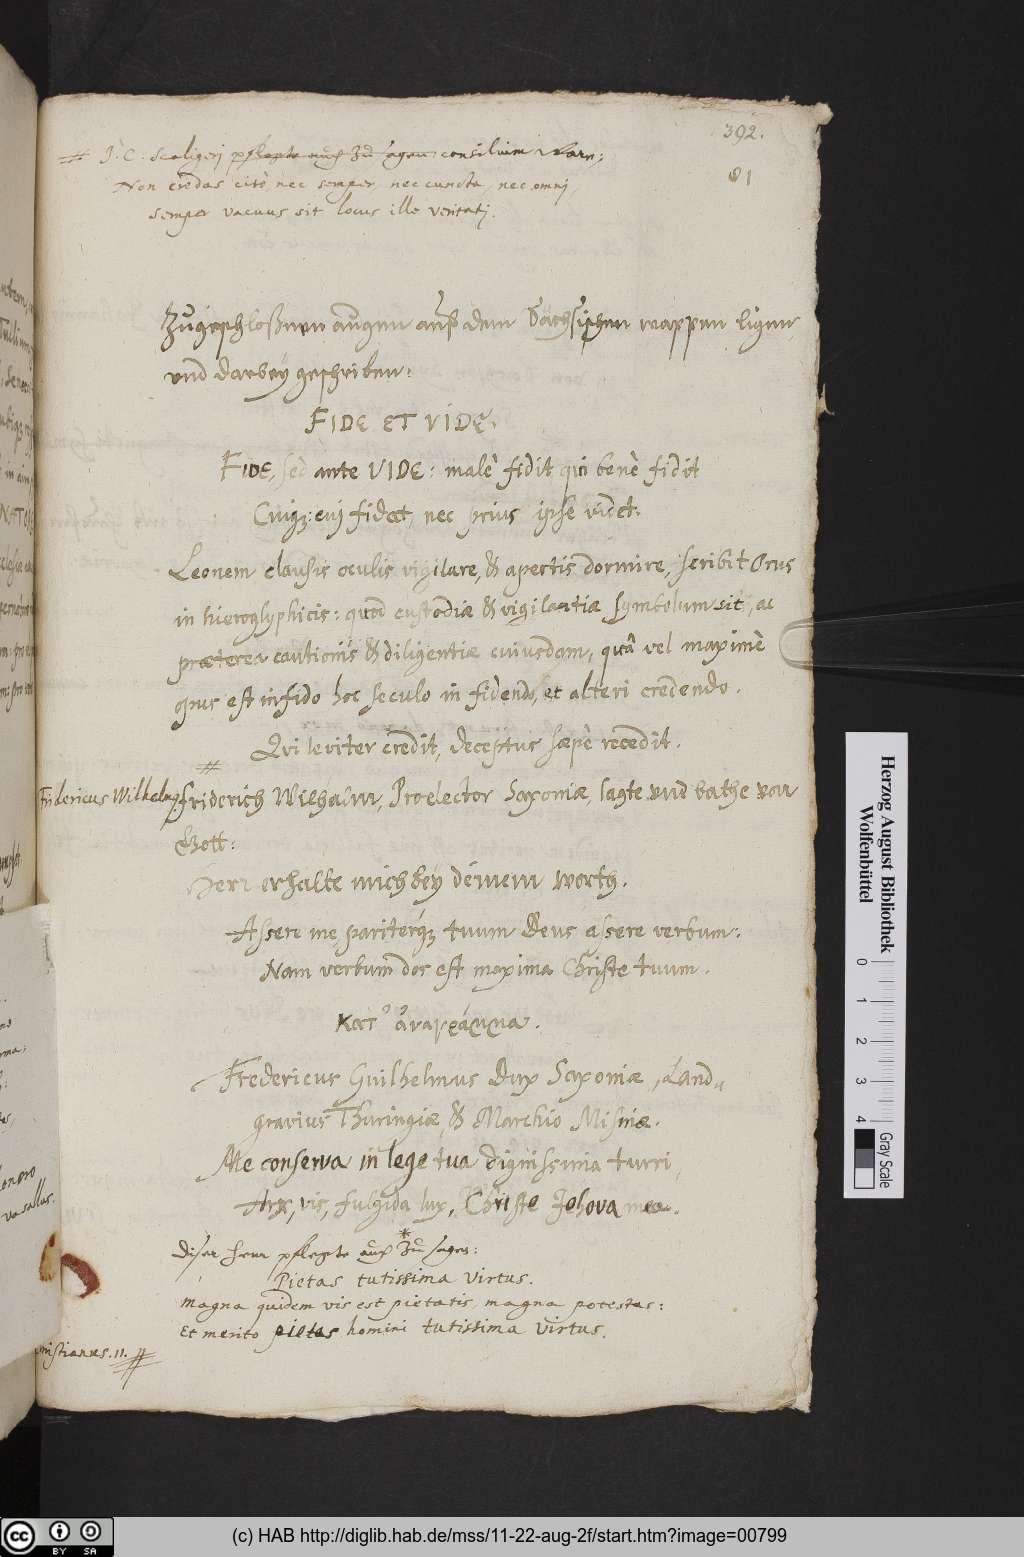 392.
81
J. C. Scaligeri pflegte auch zu sagen: consilium
Non credas citò, nec semper, nec cuncta, nec omnj,
Semper vacuus sit locus ille veritatj.
Zugeschloßnen augen auf dem Sächsischen wappen ligen,
vnd darbey geschriben:
FIDE ET VIDE.
FIDE, sed ante VIDE: malè fidit, qui benè fidit
Cuiq3: cuj fidat, nec prius ipse videt.
Leonem clausis oculis vigilare, & apertis dormire, scribit Orus
in hieroglyphicis: quod custodiæ & vigilantiæ symbolum sit, ac
præterea cautionis & diligentiæ cuiusdam, quâ vel maximè
opus est infido hoc seculo in fidendo, et alteri credendo.
Qvi leviter credit, deceptus sæpè recedit.
Fridericus Wilhelmg
Friderich Wilhalm, Proelector Saxoniæ, sagte vnd bathe von
Gott:
Herr erhalte mich bey deinem worth.
Assere me, pariterq3 tuum Deus assere verbum:
Nam verbum dos est maxima Christe tuum.
Fredericus Guilhelmus Dux Saxoniæ, Land-
gravius Thuringiæ, & Marchio Misniæ.
Me conserva in lege tua dignissima turri,
Arx, vis, fulgida lux, Christe Jehova mea.
Diser herr pflegte auch zu sagen:
Pietas tutissima virtus.
Magna quidem vis est pietatis, magna potestas:
Et merito pietas homini tutissima virtus.
Herzog August Bibliothek
Wolfenbüttel
0 1 2 3 4
Gray Scale
cc BY SA
(c) HAB http://diglib.hab.de/mss/11-22-aug-2f/start.htm?image=00799